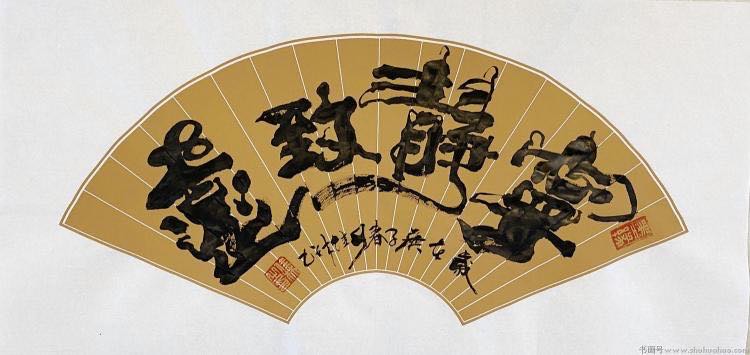 寧靜致遠
歲在庚子春月
书画号www.shuhuahao.com